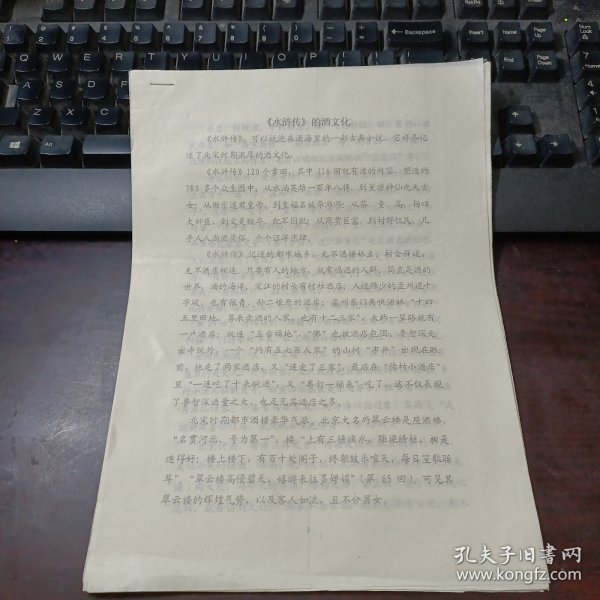 《水浒传》的酒文化
《水浒传》，可以说泡在酒海里的一部古典小说，它详尽记
述了北宋时期浓厚的酒文化。
《水浒传》120个章回，其中116回就有酒的内容，塑造的
780多个众生图中，从水泊英雄一百单八将，到星宿神仙九天玄
女；从徽宗道君皇帝，到皇婿名妓李师师；从蔡、童、高、杨四
大奸臣，到文吏狱卒、配军囚犯；从商贾巨富，到村野佻民，几
乎人人尚酒崇饮，个个汪洋恣肆。
《水浒传》记述的都市城乡，无不酒楼林立；村舍驿道，
无不酒店相连，只要有人的地方，就有喝酒的人群，简直是酒的
世界、酒的海洋。宋江的村头有村社酒店；人迹稀少的孟州道十
字坡，也有张青、孙二娘开的酒店；孟州东门离快活林“十四
五里田地，算来卖酒的人家，也有十二三家”，大约一里路就有
一户酒店；就连“五台福地”，“佛”也被酒店包围，鲁智深走
出寺院外，一个“约有五七百人家”的山村“市井”出现在眼
前，他走了两家酒店，又“连走了三家”，最后在“傍村小酒店”
里“一连吃了十来碗酒”，又“再打一桶来”吃了，这不仅表现
了鲁智深酒量之大，也足见其酒店之多。
北宋时期都市酒楼豪华气派。北京大名府翠云楼是座酒楼，
“名贯河北、号为第一”，楼“上有三檐滴水，雕梁绣柱，极是
造得好；楼上楼下，有百十处阁子，终朝鼓乐喧天，每日笙歌聒
耳”，“翠云楼高侵碧天，嬉游来往多婵娟”（第65回），可见其
翠云楼的辉煌气势，以及客人如流，且不分男女。
1
Backspace
Insert
Home
End
孔夫子旧书网
www.kongfz.com